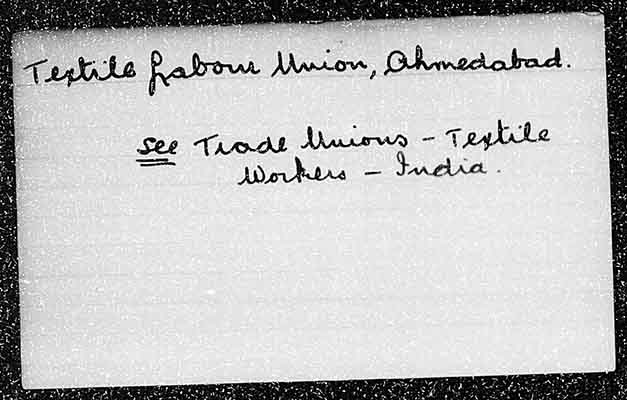 Textile Labour Union, Ahmedabad.
see Trade Unions - Textile
Workers - India.